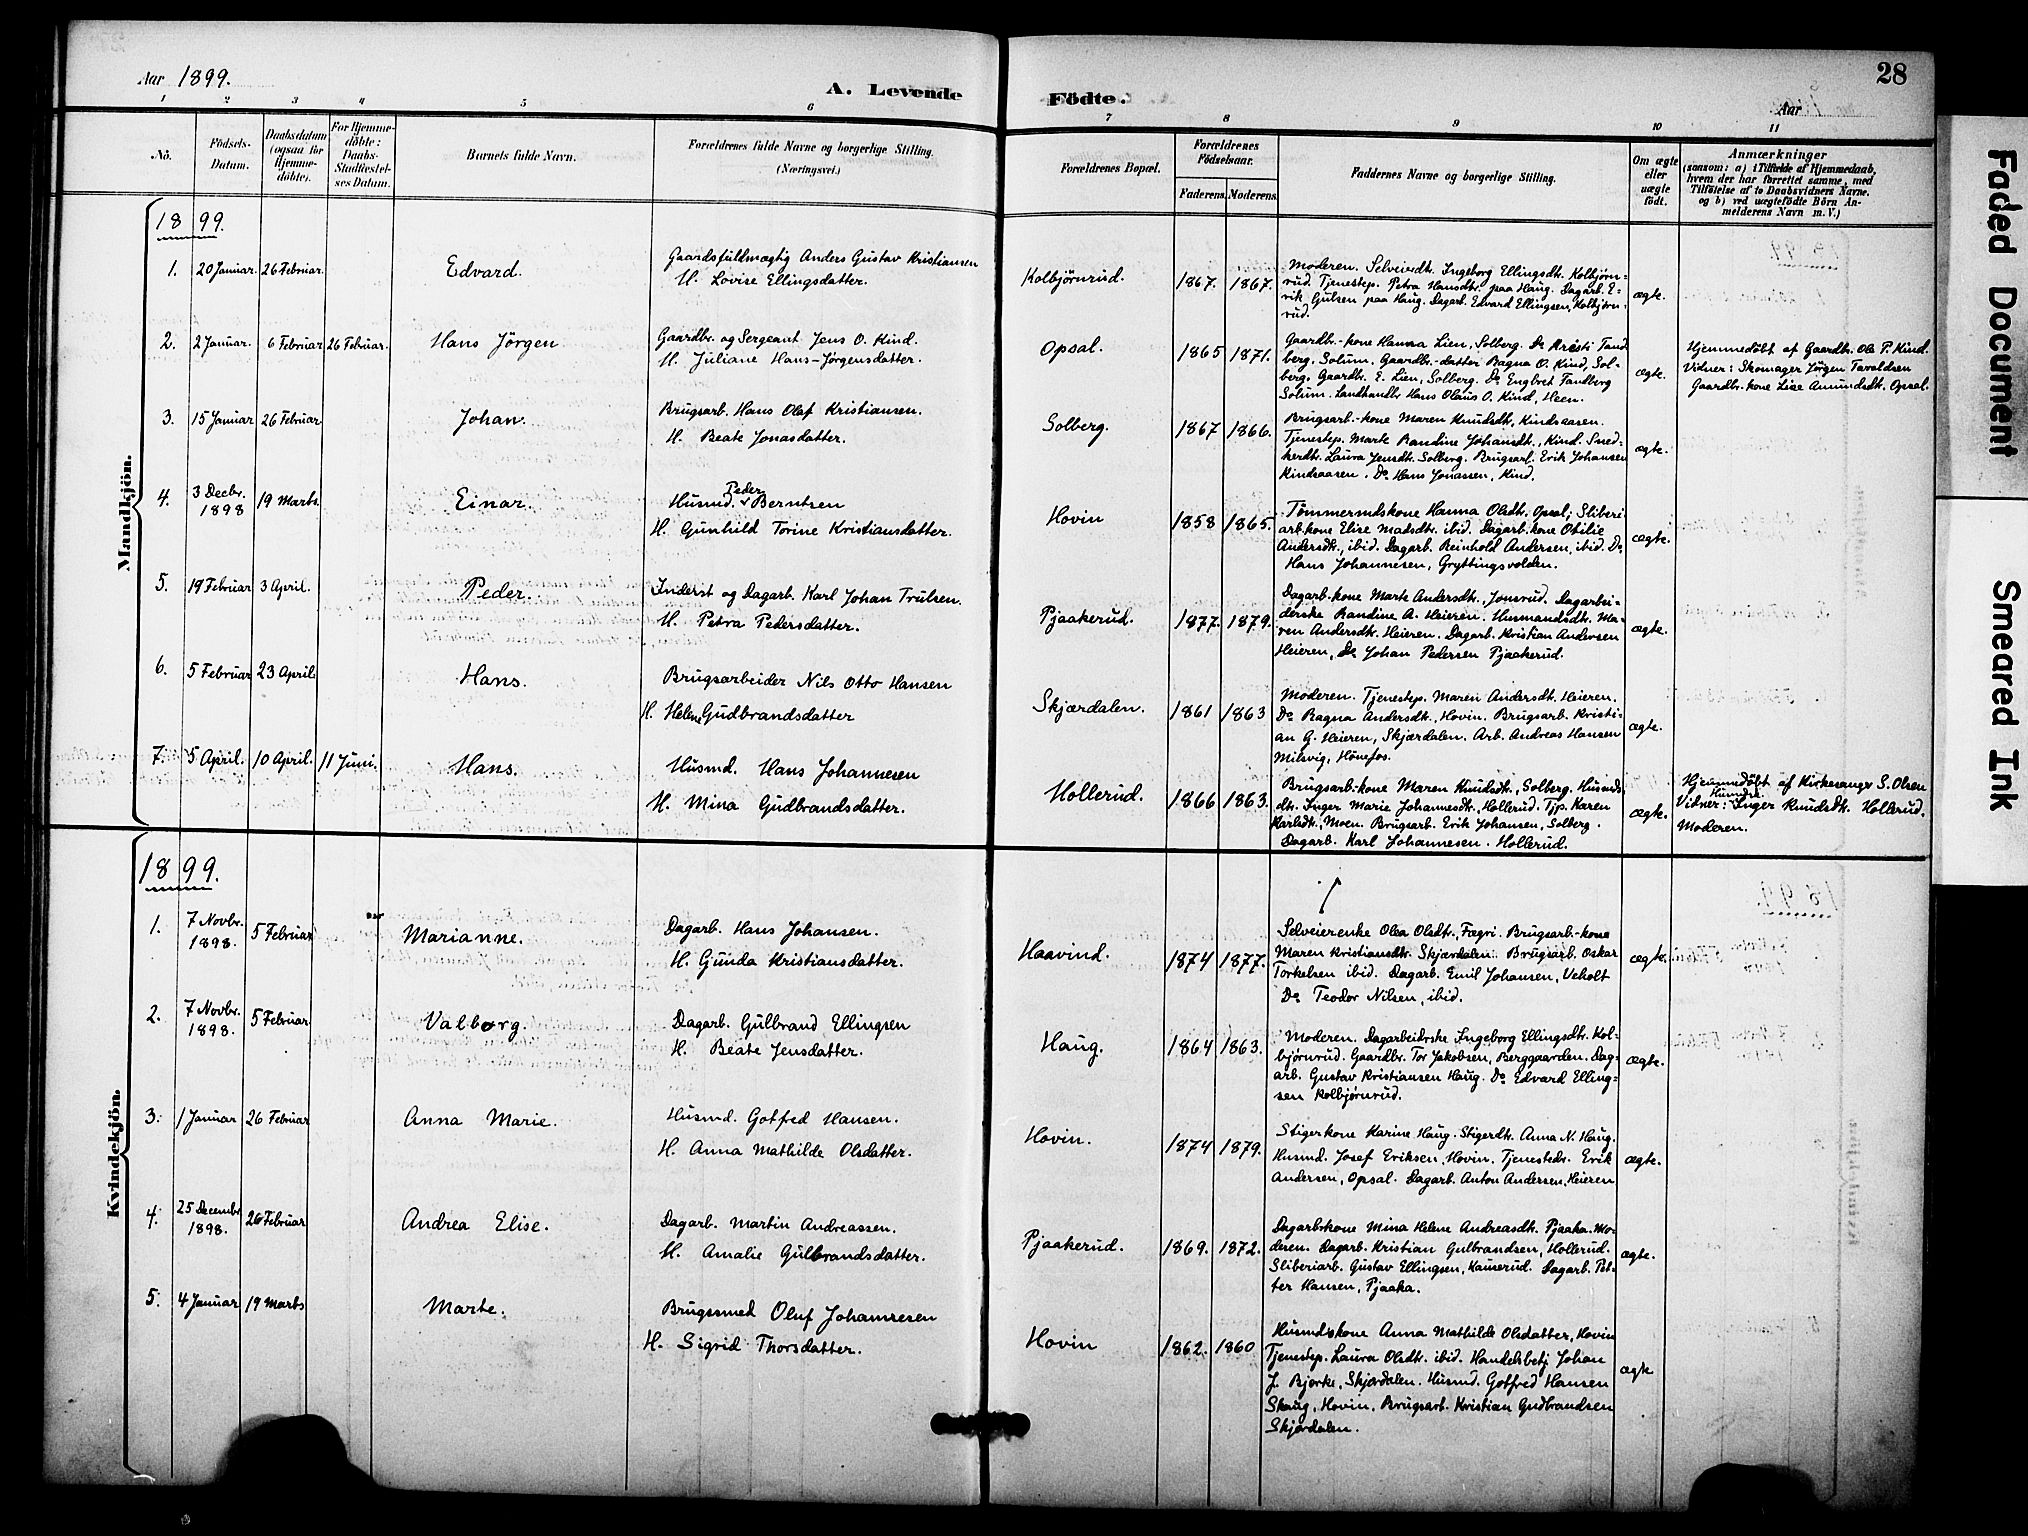 Aar 1899.
A. Levende Födte.
28
Aar
1 2 3 4 5 6 7 8 9 10 11
Nö.
Födsels-Datum.
Daabsdatum (ogsaa for Hjemme-döbte).
For Hjemme-döbte: Daabs-Stadfæstel-ses Datum.
Barnets fulde Navn.
Forældrenes fulde Navne og borgerlige Stilling.
(Næringsvei.)
Forældrenes Bopæl.
Forældrenes Födselsaar.
Faderens. Moderens.
Faddernes Navne og borgerlige Stilling.
Om ægte eller uægte födt.
Anmærkninger
(saasom: a) i Tilfælde af Hjemmedaab,
hvem der har forrettet samme, med
Tilföielse af to Daabsvidners Navne.
og b) ved uægtefödte Börn An-
melderens Navn m.V.)
Mandkjön.
1899.
1. 20 Januar. 26 Februar. Edvard. Gaardsfuldmægtig Anders Gustav Kristiansen
H. Lovise Ellingsdatter.
Kolbjørnrud. 1867. 1867.
Moderen. Selveierdtr. Ingeborg Ellingsdtr. Kolbjørn=
rud. Tjenestep. Petra Hansdtr. paa Haug. Dagarb. E-
rik Gulsen paa Haug. Dagarb. Edvard Ellingsen, Kolbjørn-
rud.
ægte.
2. 2 Januar. 6 Februar 26 Februar. Hans Jörgen Gaardbr. og Sergeant Jens O. Kind.
H. Juliane Hans-Jørgensdatter.
Opsal. 1865 1871.
Gaardbr.-kone Hanna Lien, Solberg. Do Kristi Tand
berg. Solum. Gaardbr.-datter Ragna O. Kind, Sol-
berg. Gaardbr. E. Lien, Solberg. Do Engbret Tandberg
Solum. Landhandlr Hans Olaus O. Kind, Heen.
ægte.
Hjemmedöbt af Gaardbr. Ole P. Kind.
Vidner: Skomager Jørgen Tavaldsen
Gaardbr.-kone Lise Amundsdt. Opsal.
3. 15 Januar 26 Februar. Johan. Brugsarb. Hans Olaf Kristiansen.
H. Beate Jonasdatter.
Solberg. 1867 1866.
Brugsarb.-kone Maren Knudsdt, Kindsaasen.
Tjenestep. Marte Randine Johansdt., Kind. Sned-
kerdtr. Laura Jensdt. Solberg. Brugsarb. Erik Johansen
Kindsaasen. Do Hans Jonassen, Kind.
ægte.
4. 3 Decbr. 1898 19 Marts. Einar. Husmd. Peder Berntsen
H. Gunhild Torine Kristiansdatter.
Hovin 1858 1865.
Tømmermdskone Hanna Olsdt. Opsal; Sliberi
arb.kone Elise Madsdtr. ibid. Dagarb.kone Otilie
Andersdt., ibid. Dagarb. Reinhold Andersen, ibid. Do
Hans Johannesen, Gryttingsvolden.
ægte.
5. 19 Februar 3 April. Peder. Inderst og Dagarb. Karl Johan Trulsen.
H. Petra Pedersdatter.
Pjaakerud. 1877. 1879.
Dagarb.kone Marte Andersdtr., Jonsrud. Dagarbei-
derske Randine A. Heieren. Husmandsdtr. Ma-
ren Andersdt. Heieren. Dagarb. Kristian Andersen
Heieren, Do Johan Pedersen Pjaakerud.
ægte.
6. 5 Februar 23 April. Hans. Brugsarbeider Nils Otto Hansen
H. Helene Gudbrandsdatter
Skjærdalen. 1861 1863
Moderen. Tjenestep. Maren Andersdt. Heieren.
Do Ragna Andersdt., Hovin. Brugsarb. Kristi-
an G. Heieren, Skjærdalen. Arb. Andreas Hansen
Milsvig, Hönefos.
ægte.
7. 5 April. 10 April. 11 Juni. Hans. Husmd. Hans Johannesen
H. Mina Gudbrandsdatter.
Hollerud. 1866 1863.
Brugsarb.-kone Maren Knudsdt., Solberg. Husmds
dt. Inger Marie Johannesdt., Hollerud. Tjp. Karen
Karlsdt., Moen. Brugsarb. Erik Johansen, Solberg.
Dagarb. Karl Johannesen. Hollerud.
ægte.
Hjemmedöbt af Kirkesanger S. Olsen
Vidner: Husmdk. Inger Knudsdt. Hollerud.
Moderen.
Kvindekjön.
1899.
1. 7 Novbr. 1898. 5 Februar Marianne. Dagarb. Hans Johansen.
H. Gunda Kristiansdatter.
Haavind. 1874 1877.
Selveierenke Olea Olsdtr., Fægri. Brugsarb.-kone
Maren Kristiansdt. Skjærdalen. Brugsarb. Oskar
Torkelsen ibid. Dagarb. Emil Johansen, Veholt
Do Teodor Nilsen, ibid.
ægte.
2. 7 Novbr. 1898. 5 Februar. Valborg. Dagarb. Gulbrand Ellingsen
H. Beate Jensdatter.
Haug. 1864 1863.
Moderen. Dagarbeidrske Ingeborg Ellingsdtr. Kol-
bjørnrud. Gaardbr. Tor Jakobsen, Berggaarden. Dag-
arb. Gustav Kristiansen Haug. Do Edvard Elling=
sen Kolbjørnrud.
ægte.
3. 1 Januar 26 Februar Anna Marie. Husmd. Gotfred Hansen.
H. Anna Mathilde Olsdatter.
Hovin. 1874 1879.
Stigerkone Karine Haug. Stigerdt. Anna N. Haug.
Husmd. Josef Eriksen, Hovin. Tjenestedr. Erik
Andersen, Opsal. Dagarb. Anton Andersen, Heieren
ægte.
4. 25 Decembr 1898. 26 Februar Andrea Elise. Dagarb. Martin Andreassen.
H. Amalie Gulbrandsdatter.
Pjaakerud. 1869. 1872.
Dagarb.kone Mina Helene Andreasdt. Pjaaka. Mo-
deren. Dagarb. Kristian Gulbrandsen, Hollerud.
Sliberiarb. Gustav Ellingsen, Kamerud. Dagarb. Pet-
ter Hansen, Pjaaka.
ægte.
5. 4 Januar 19 Marts Marte. Brugssmed Oluf Johannesen
H. Sigrid Thorsdatter.
Hovin 1862. 1860
Husmdskone Anna Mathilde Olsdatter, Hovin
Tjenestep. Laura Olsdt. ibid. Handelsbetj. Johan
J. Bjørke, Skjærdalen. Husmd. Gotfred Hansen
Skaug, Hovin. Brugsarb. Kristian Gudbrandsen
Skjærdalen.
ægte
Faded Document
Smeared Ink